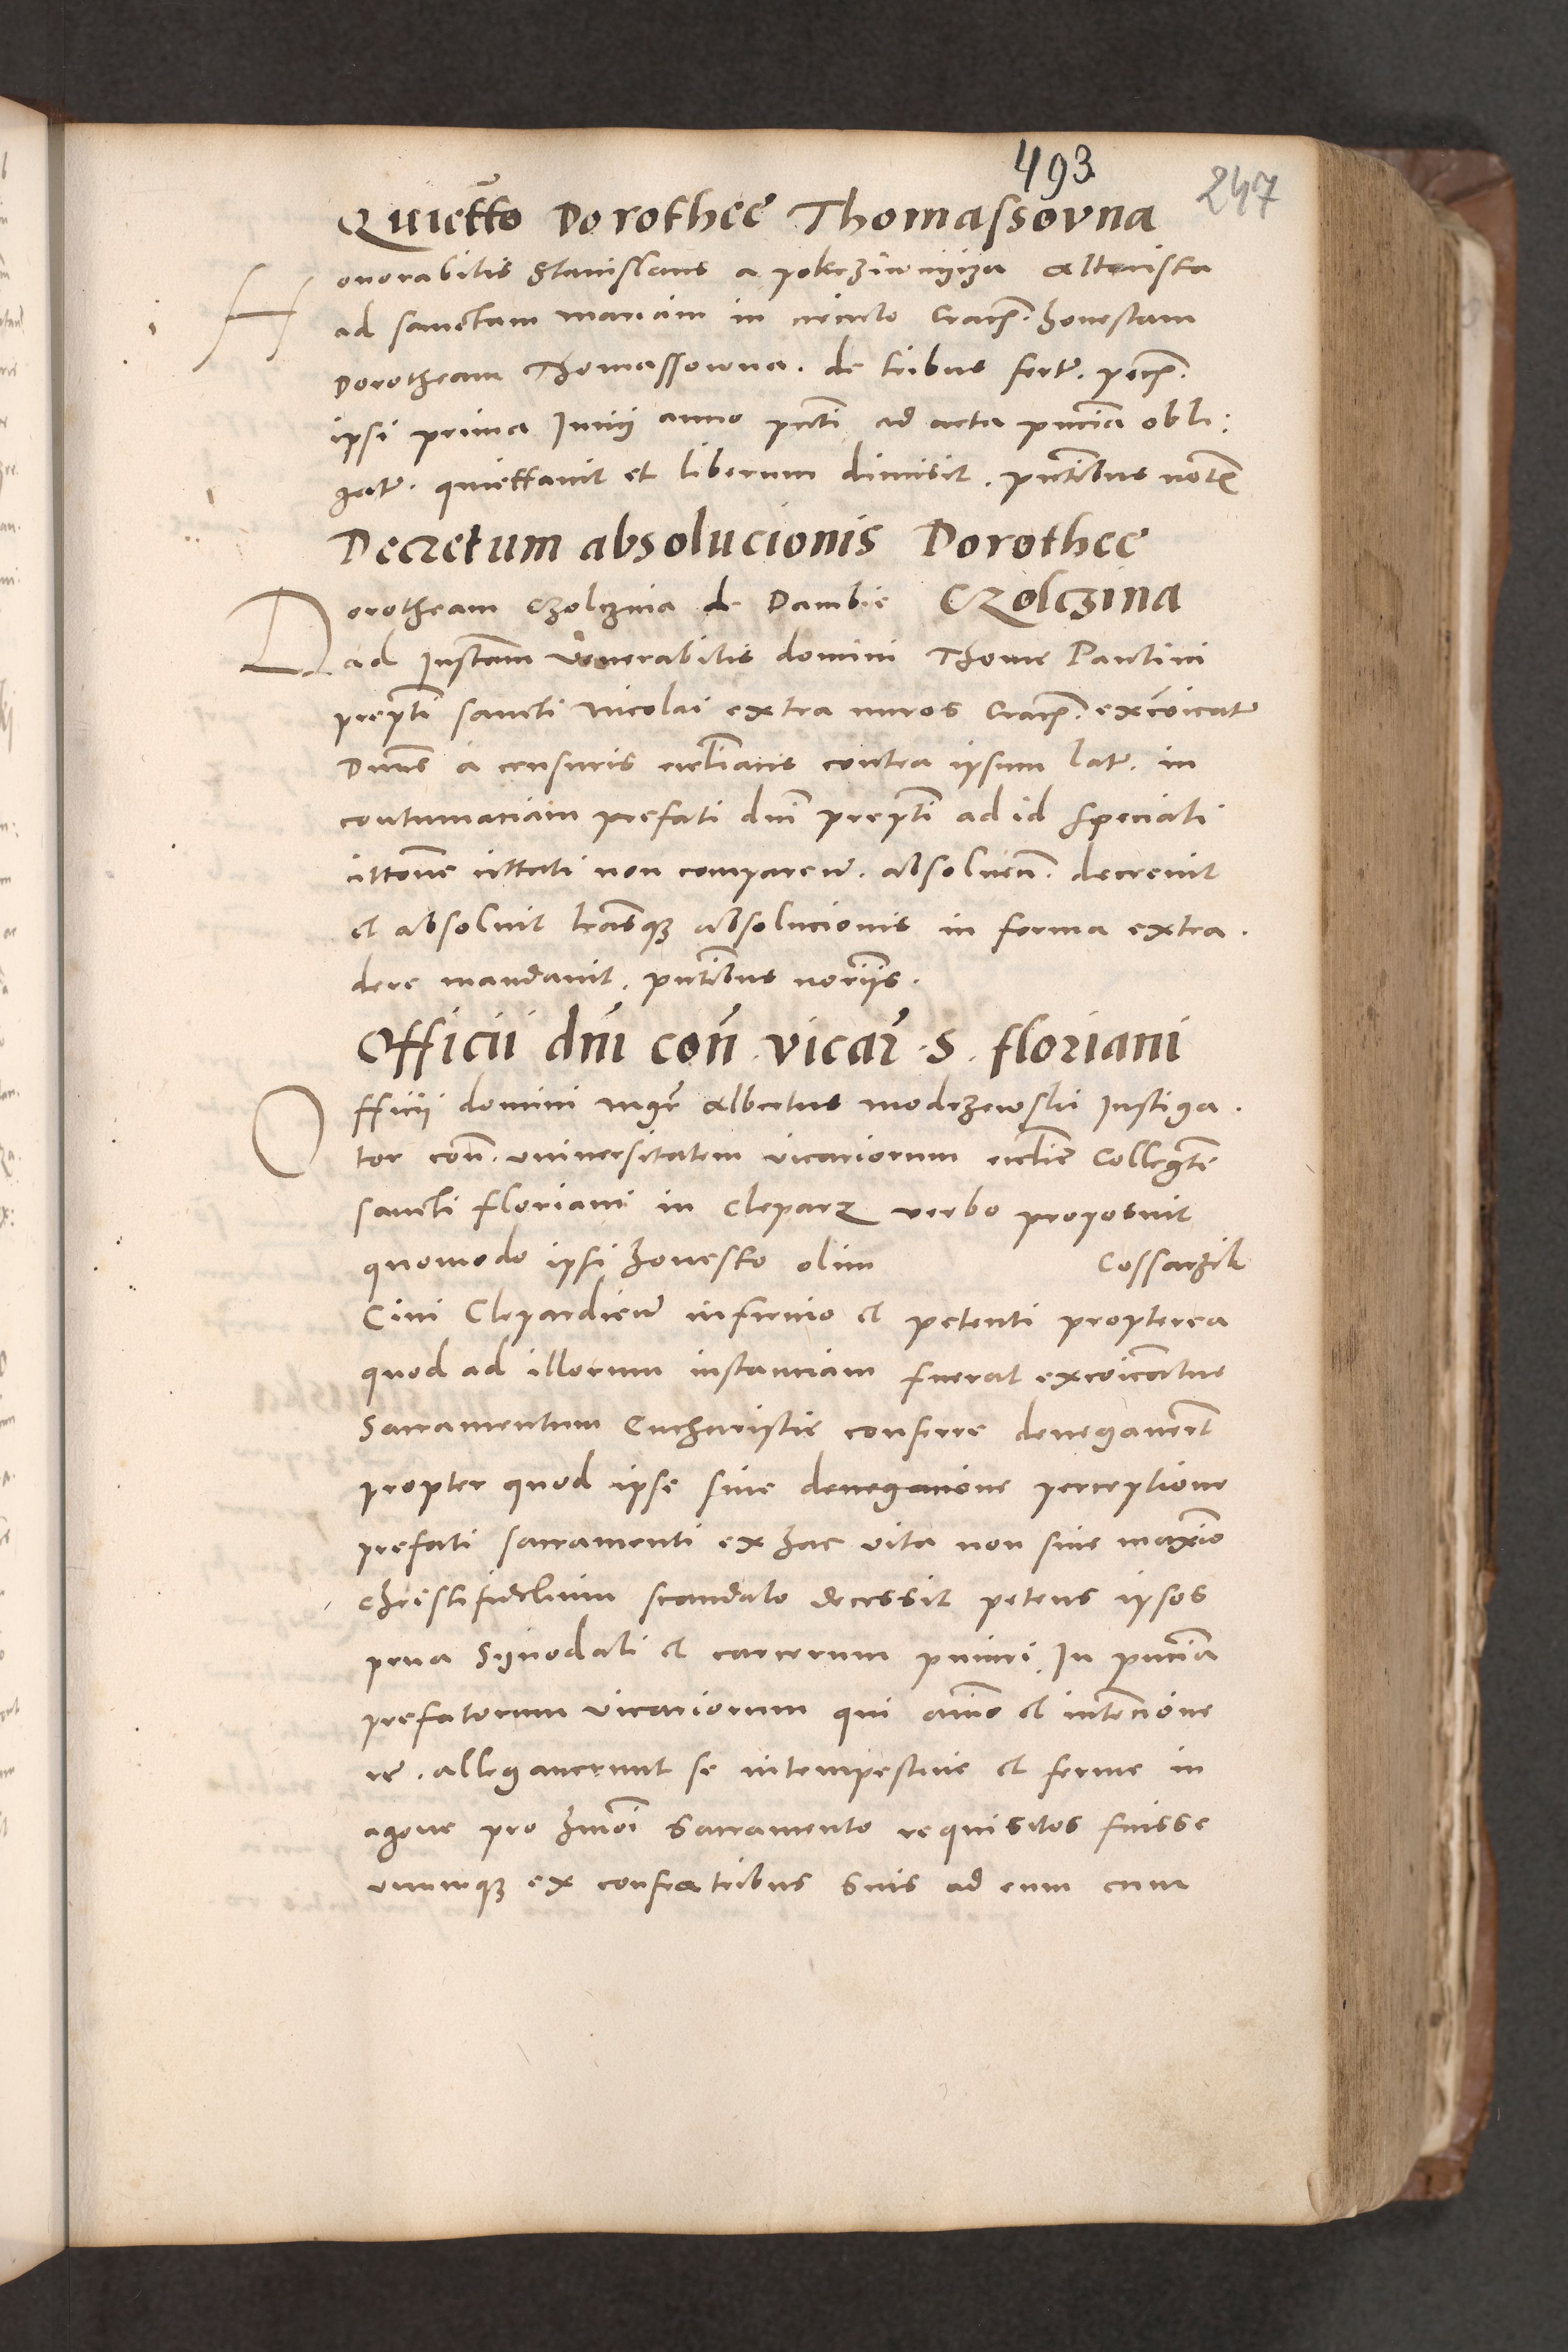 493
247
Quiettõ Dorothee Thomassovna
Honorabilis Stanislaus a pokrziwnycza Altarista
ad sanctam mariam in circulo Cracῳ. honestam
Dorotheam Thomassowna. de tribus fertῳ. pecῳ.
ipsi prima Junij anno pñti ad acta pñcia obli:
gatῳ. quiettavit et liberam dimisit. pñtibus notῳ
Decretum absolucionis Dorothee
Czolczina
Dorotheam Czolczina de Dambie
ad Instãm venerabilis domini Thome Paulini
prepti sancti Nicolai extra muros Cracῳ. excõicatῳ
Dnus a censuris ecclĩaticis contra ipsam latῳ. in
contumaciam prefati dni prepti ad id speciali
cittone cittati non comparenῳ. absolvenῳ. decrevit
et absolvit lrasqʒ absolucionis in forma extra.
dere mandavit. pñtibus norijs.
Officii dñi coñ. vicar̃. S. floriani
Officij domini mgr̃ Albertus modrzewski Instiga.
tor coñ. universitatem vicariorum ecclie Collegte
sancti floriani in Cleparz verbo proposuit
quomodo ipsi honesto olim Cossarzik
Civi Clepardienῳ infirmo et petenti propterea
quod ad illorum instanciam fuerat excõicatus
Sacramentum Eucharistie conferre denegaverĩt
propter quod ipse sine denegacione perceptione
prefati sacramenti ex hac vita non sine maxio
christifidelium scandalo decessit petens ipsos
pena Synodali et carcerum puniri. In pñcia
prefatorum vicariorum qui aĩmo et intencione
rῳ. allegaverunt se intempestive et ferme in
agone pro hmõi Sacramento requisitos fuisse
unumqʒ ex confratribus suis ad eum cum